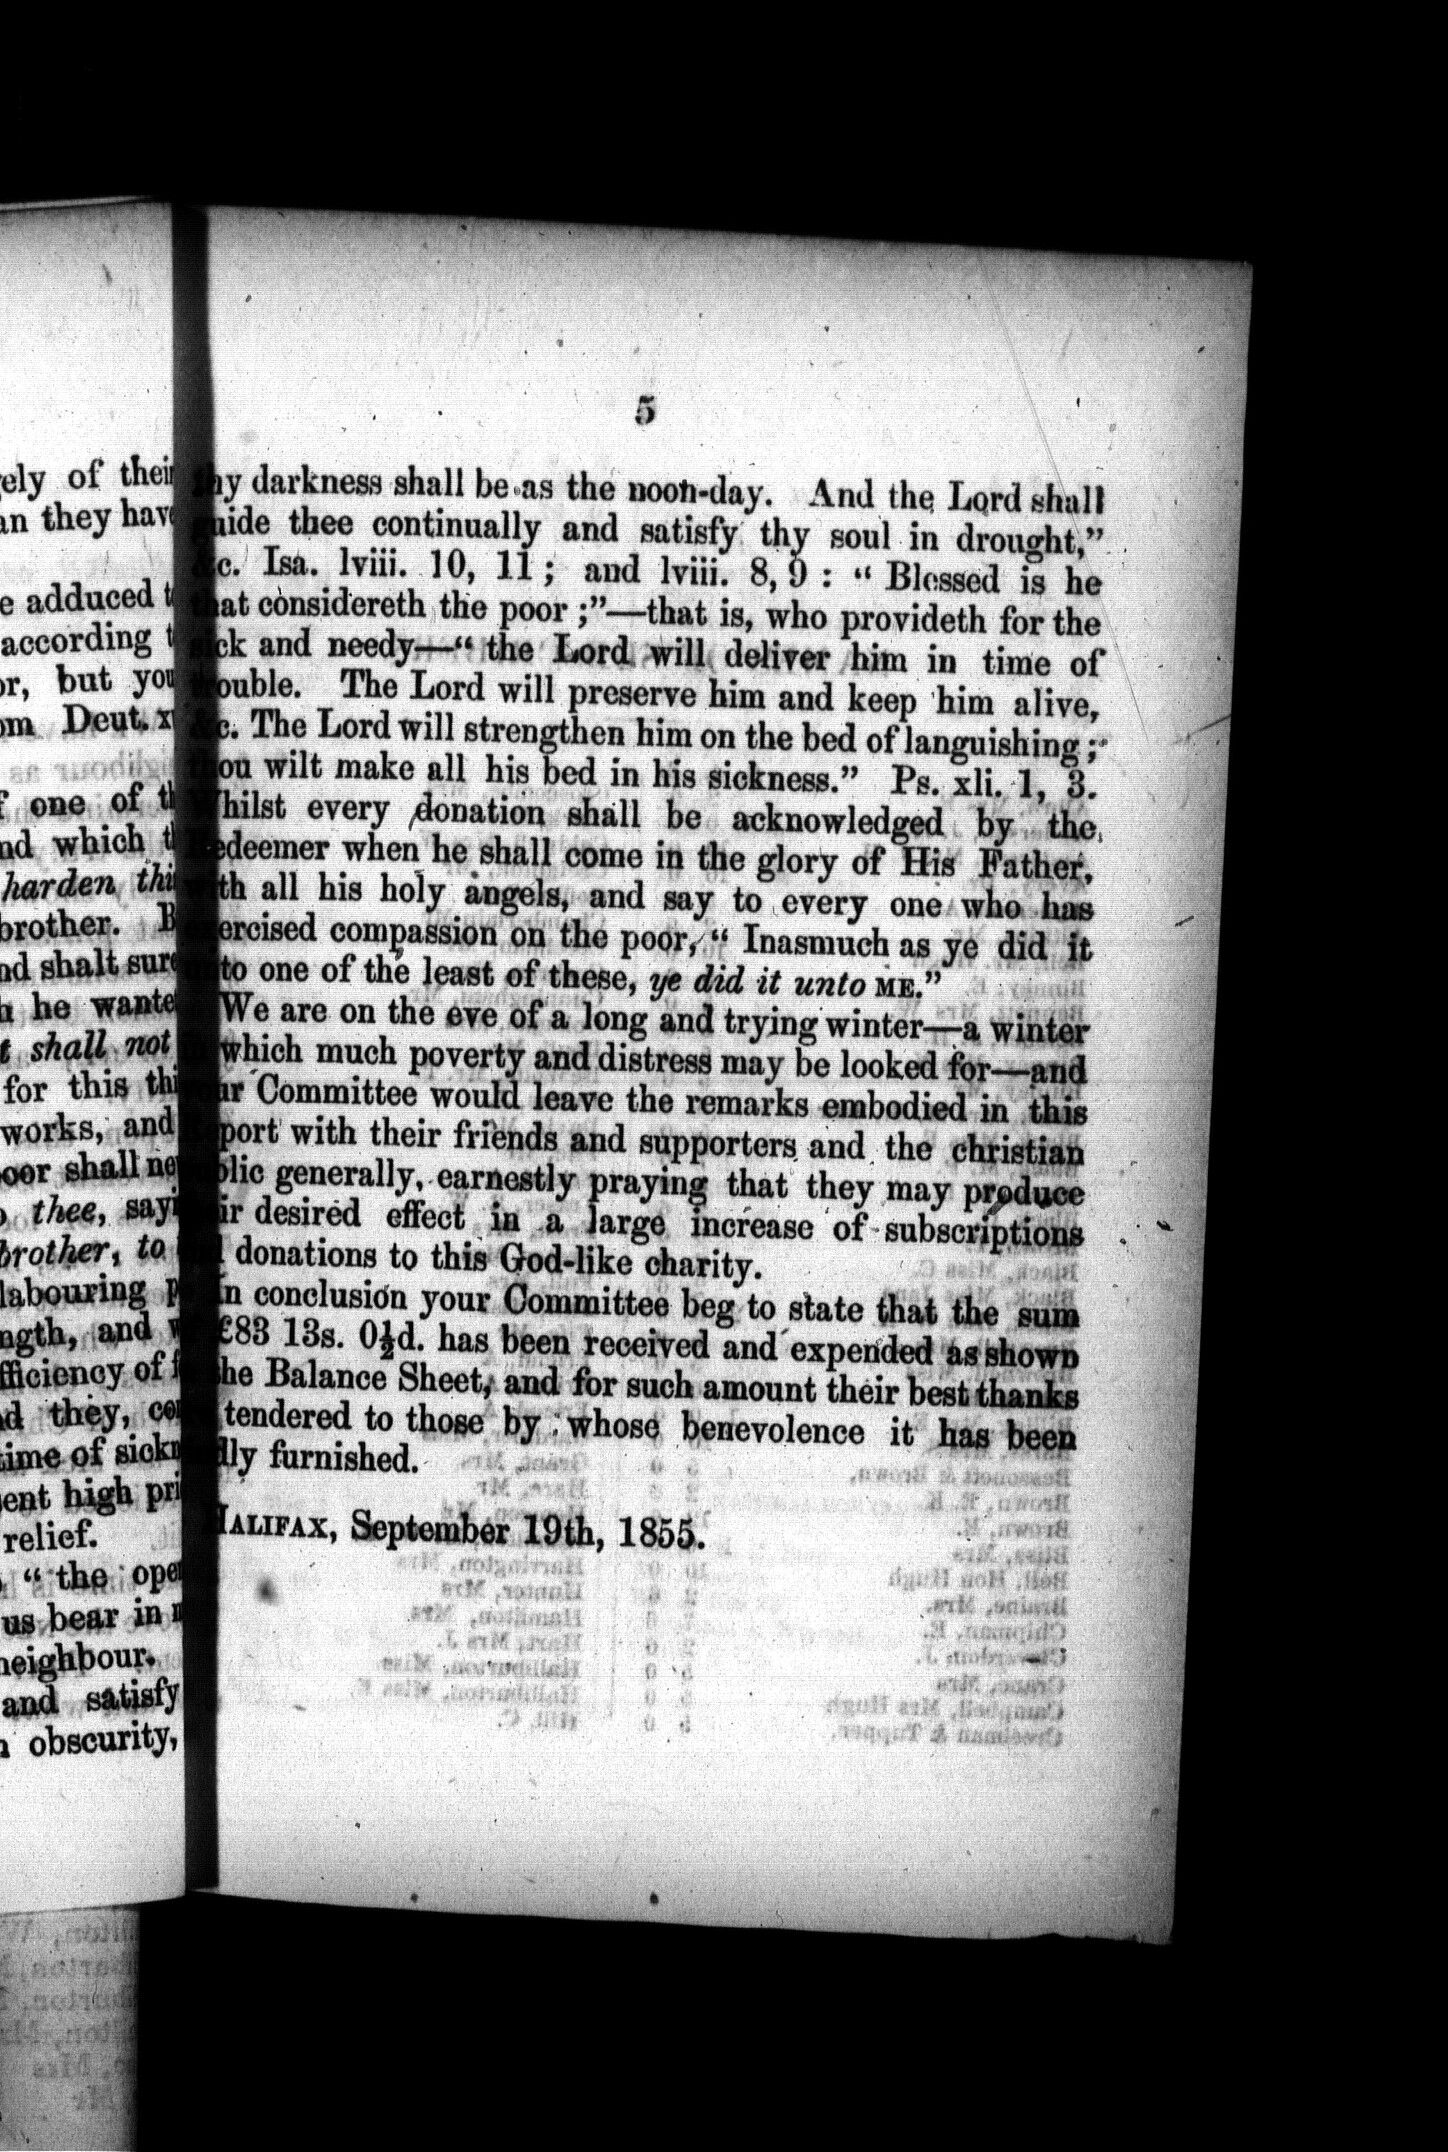 ely of their
an they have
e adduced
according
or, but you
om Deut.
one of
nd which
harden
brother.
nd shalt
he wanted
shall not
for this
works, and
poor shall
thee,
brother, to
labouring
ngth, and
fficiency of
nd they,
time of
sent high
relief.
" the
us bear in
neighbour.
and satisfy
obscurity,
5
thy darkness shall be as the noon-day. And the Lord shall
guide thee continually and satisfy thy soul in drought,"
&c. Isa. lviii. 10, 11 ; and lviii. 8, 9 : " Blessed is he
that considereth the poor ;"—that is, who provideth for the
sick and needy—" the Lord will deliver him in time of
trouble. The Lord will preserve him and keep him alive,
&c. The Lord will strengthen him on the bed of languishing ;
thou wilt make all his bed in his sickness." Ps. xli. 1, 3.
Whilst every donation shall be acknowledged by the
Redeemer when he shall come in the glory of His Father,
with all his holy angels, and say to every one who has
exercised compassion on the poor, " Inasmuch as ye did it
unto one of the least of these, ye did it unto ME."
We are on the eve of a long and trying winter—a winter
in which much poverty and distress may be looked for—and
your Committee would leave the remarks embodied in this
Report with their friends and supporters and the christian
public generally, earnestly praying that they may produce
their desired effect in a large increase of subscriptions
and donations to this God-like charity.
In conclusion your Committee beg to state that the sum
£83 13s. 0½d. has been received and expended as shown
the Balance Sheet, and for such amount their best thanks
tendered to those by whose benevolence it has been
furnished.
HALIFAX, September 19th, 1855.